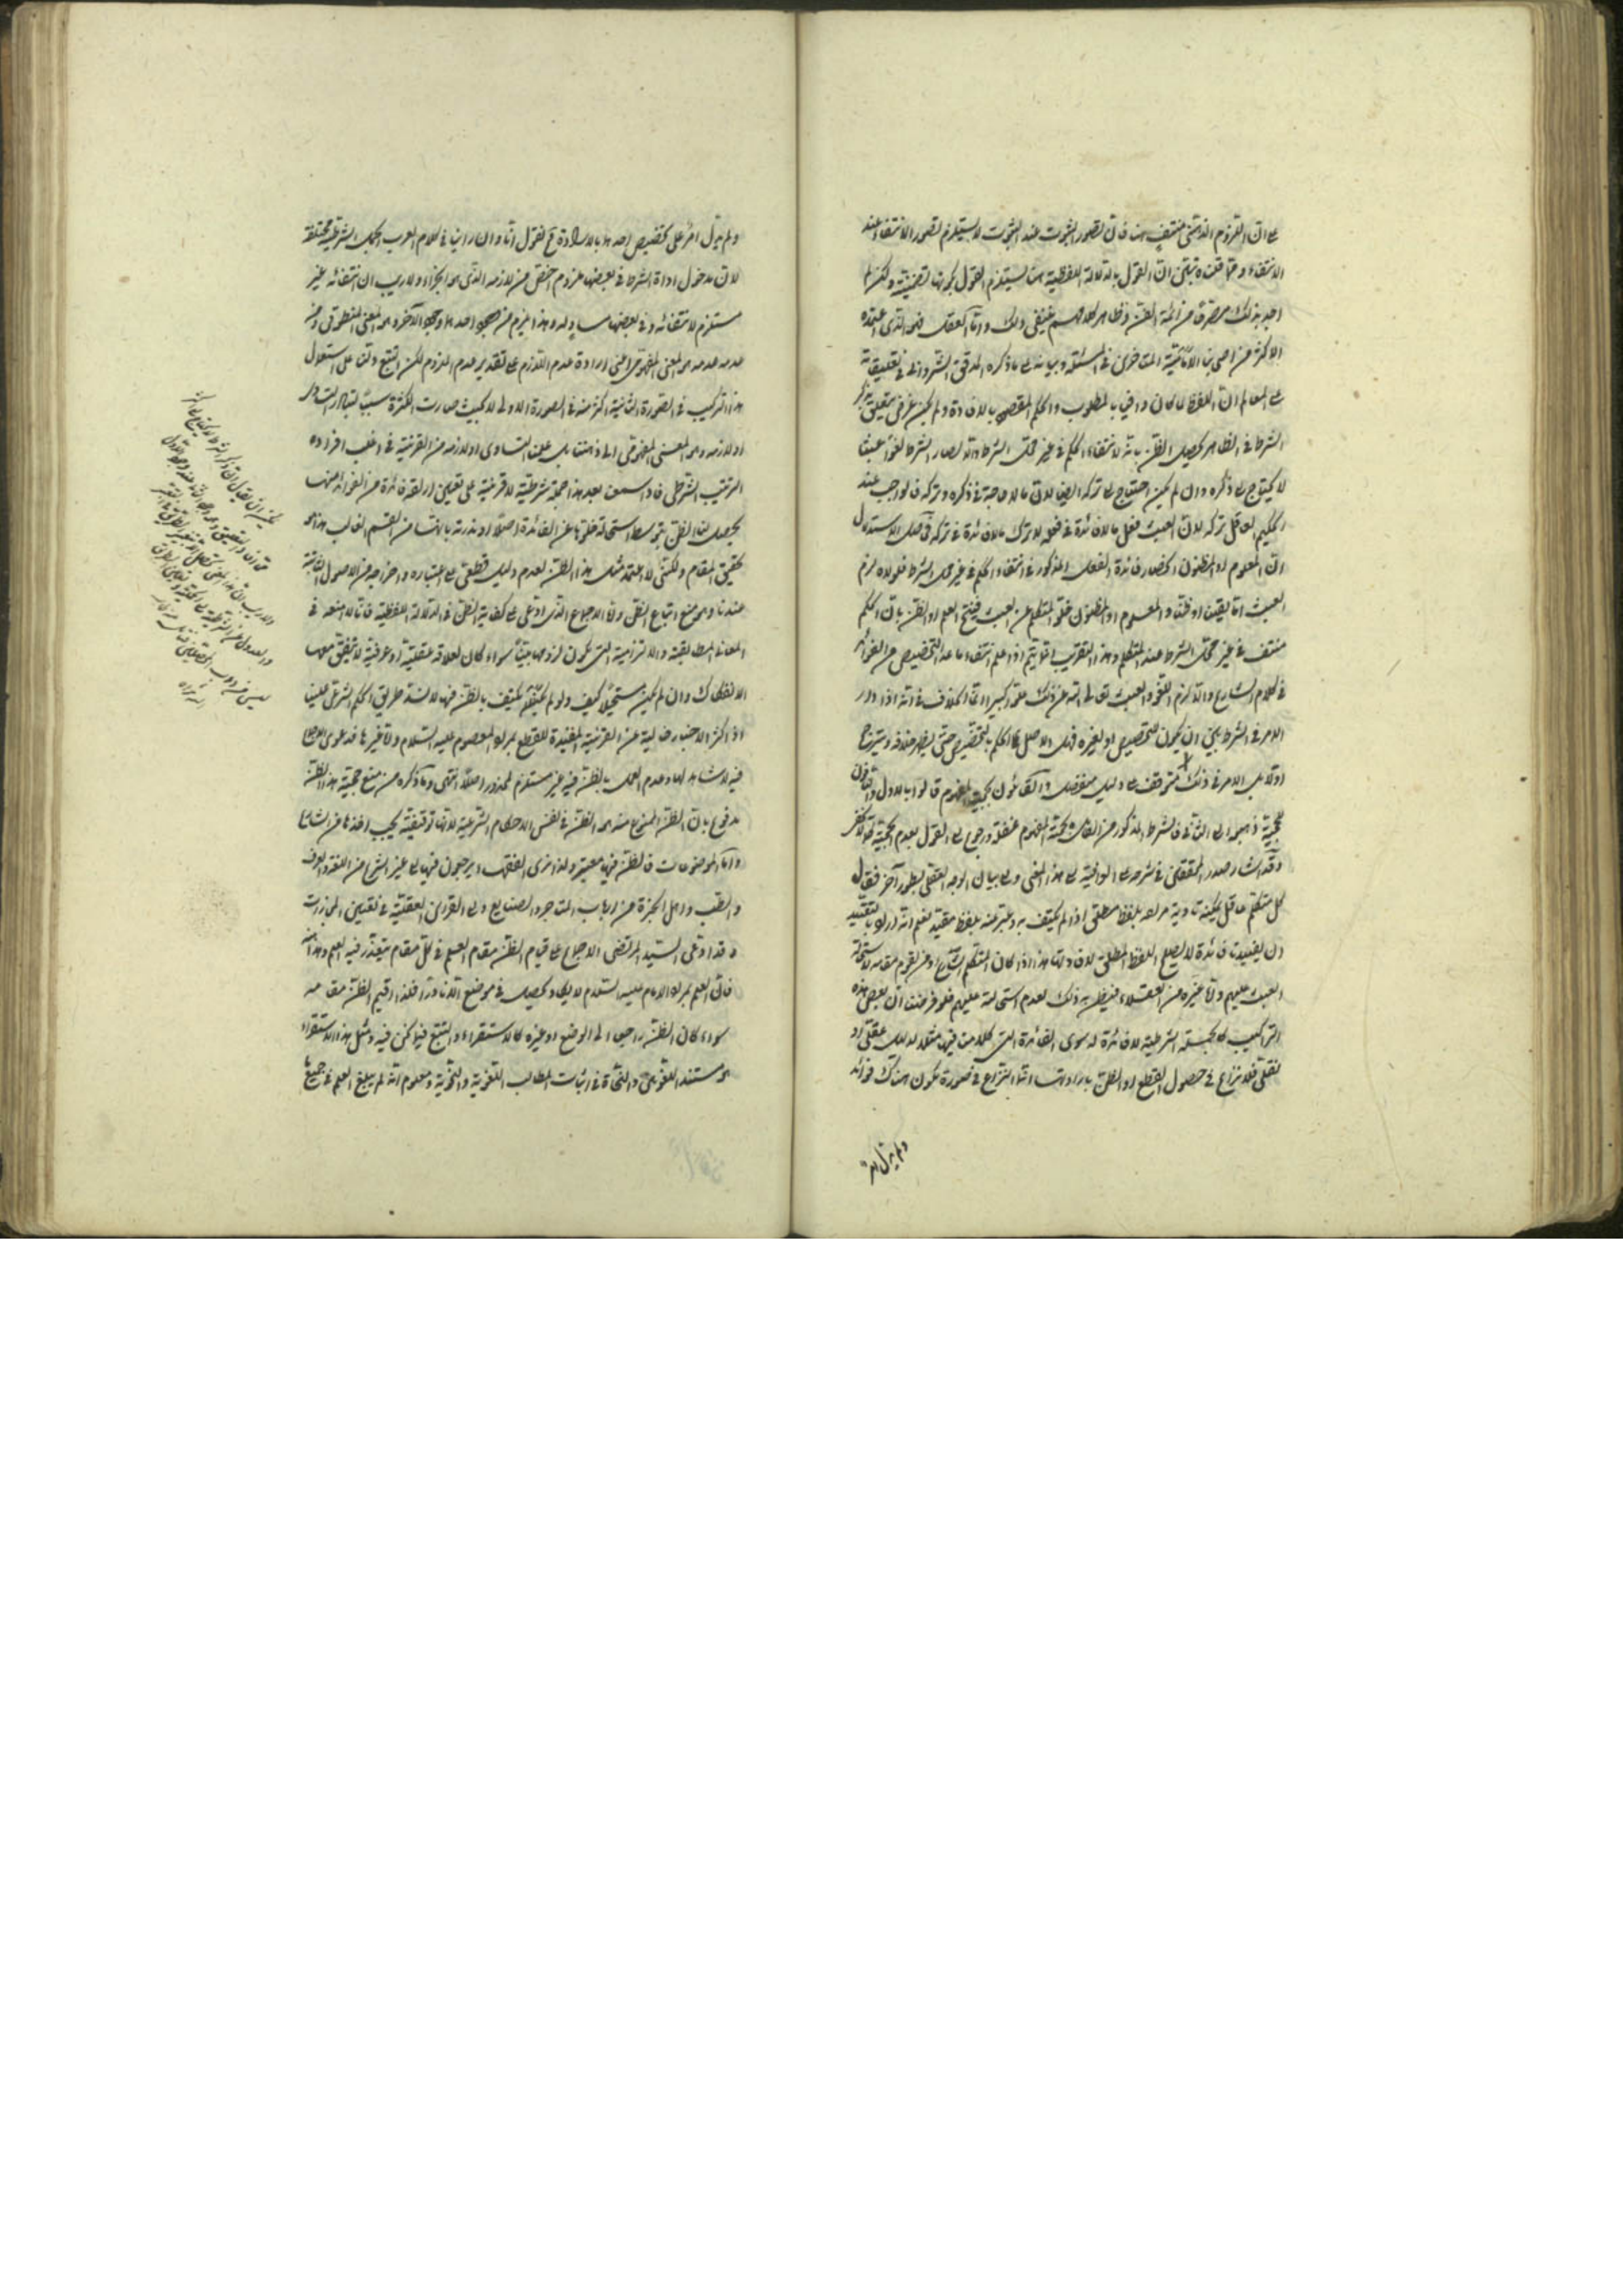 على ان اللزوم الذهنى منتف هنا فان تصور الثبوت عند الثبوت لا يستلزم تصور الانتفاء عند
الانتفاء ومما قلناه تبين ان القول بالدلالة اللفظية هنا يستلزم القول بكونها تضمنية ولكن لم
اجد بذلك مصرحا من ائمة الفن وظاهر كلامهم ينفى ذلك واما العقل فهو الذى اعتمده
الاكثر من اصحابنا الامامية المتاخرين فى المسئلة وبيانه على ما ذكره المدقق الشروانى فى تعليقاته
على المعالم ان اللفظ لما كان وافيا بالمطلوب والحكم المقصود بالافادة ولم يكن غرض يتعلق بذكر
الشرط فى الظاهر يحصل الظن بانه لانتفاء الحكم فى غير محل الشرط والا لصار الشرط لغوا عبثا
لا يحتاج الى ذكره وان لم يكن احتياج الى تركه ايضا لان ما لا حاجة فى ذكره وتركه فالواجب عند
الحكيم العاقل تركه لان العبث فعل ما لا فائدة فى فعله لا ترك ما لا فائدة فى تركه فحاصل الاستدلال
ان المعلوم او المظنون انحصار فائدة الفعل المذكور فى انتفاء الحكم فى غير محل الشرط فلولاه لزم
العبث اما يقينا او ظنا والمعلوم او المظنون خلو المتكلم عن العبث فينتج العلم او الظن بان الحكم
منتف فى غير محل الشرط عند المتكلم وهذا التقريب انما يتم اذا علم انتفاء ما عدا التخصيص من الفوائد
فى كلام الشارع والا لزم اللغو والعبث تعالى الله عن ذلك علوا كبيرا وانما الخلاف فى انه اذا دار
الامر فى الشرط بين ان يكون للتخصيص او لغيره فهل الاصل الحكم بالتخصيص حتى يظهر خلافه وستريح
اولا بل الامر فى ذلك متوقف على دليل منفصل والقائلون بحجية المفهوم قالوا بالاول والنافون
لحجيته ذهبوا الى الثانى فالشرط المذكور من القائل بحجية المفهوم غفلة ورجوع الى القول بعدم الحجية كما لا يخفى
وقد اشار صدر المحققين فى شرحه على الوافية الى هذا المعنى والى بيان الوجه العقلى بطور آخر فقال
كل متكلم عاقل يمكنه تادية مرامه بلفظ مطلق اذا لم يكتف به وعبر عنه بلفظ مقيد يعلم انه اراد بالتقييد
ان يفيدنا فائدة لا يصلح اللفظ المطلق لافادتها هذا اذا كان المتكلم الشارع او من يقوم مقامه لاستحالة
العبث عليهم واما غيره من العقلاء فيظن به ذلك لعدم استحالته عليهم فلو فرضنا ان بعض هذه
التراكيب كالجملة الشرطية لا فائدة له سوى الفائدة التى كلامنا فيها مثلا لدليل عقلى او
نقلى فلا نزاع فى حصول القطع او الظن بارادتها انما النزاع فى صورة تكون هناك فوائد
ولم يدل امر
ولم يدل امر على تخصيص احدها بالارادة فح نقول انا وان راينا فى كلام العرب الجمل الشرطية مختلفة
لان مدخول اداة الشرط فى بعضها ملزوم اخص من لازمه الذى هو الجزاء ولا ريب ان انتفائه غير
مستلزم لانتفائه وفى بعضها مساو له وهذا يلزم من وجود احدهما وجود الآخر وهو المعنى المنطوقى ومن
عدمه عدمه وهو المعنى المفهومى اعنى ارادة عدم اللازم على تقدير عدم الملزوم لكن التتبع دلنا على استعمال
هذا التركيب فى الصورة الثانية اكثر منه فى الصورة الاولى بحيث صارت الكثرة سببا لتبادر التساوى
او لازمه وهو المعنى المفهومى الى اذهاننا بل علمنا التساوى او لازمه من القرينة فى اغلب افراده
الترتيب الشرطى فاذا سمعنا بعد هذا جملة شرطية لا قرينة على تعيين ارادة فائدة من الفوائد منها
يحصل لنا الظن بتوسط استحالة خلوها عن الفائدة اصلا او ندرته بانها من القسم الغالب هذا هو
تحقيق المقام ولكنى لا اعتمد مثل هذا الظن لعدم دليل قطعى على اعتباره واخراجه من الاصول الثابتة
عندنا وهو منع اتباع الظن واما الاجماع الذى ادعى على كفاية الظن فى الدلالة اللفظية فانا لا نمنعه فى
المعانى المطابقية والالتزامية التى يكون لزومها بينا سواء كان لعلاقة عقلية او عرفية لا يتفق معها
الانفكاك وان لم يكن مستحيلا كيف ولو لم يكتف بالظن فيها لانسد طريق الحكم الشرعى علينا
اذ اكثر الاخبار خالية عن القرينة المفيدة للقطع بمراد المعصوم عليه السلام واما غيرها فدعوى الاجماع
فيه لا شاهد لها وعدم العمل بالظن فيه غير مستلزم لمحذور اصلا انتهى وما ذكره من منع حجية هذا الظن
مدفوع بان الظن الممنوع منه هو الظن فى نفس الاحكام الشرعية لانها توقيفية يجب اخذها من الشارع
واما الموضوعات فالظن فيها معتبر ولذا نرى الفقهاء يرجعون فيها الى غير الشارع من اللغة والعرف
والطب واهل الخبرة من ارباب المتاجر والصنايع والى القرائن العقلية فى تعيين المجازات
وقد ادعى السيد المرتضى الاجماع على قيام الظن مقام العلم فى كل مقام يتعذر فيه العلم وهذا منه
فان العلم بمراد الامام عليه السلام لا يكاد يحصل فى موضع الا نادرا فلذا اقيم الظن مقامه
سواء كان الظن راجعا الى الوضع او غيره كالاستقراء والتتبع فيما نحن فيه ومثل هذا الاستقراء
هو مستند اللغويين والنحاة فى اثبات المطالب اللغوية والنحوية ومعلوم انه لم يبلغ العلم فى جميعها